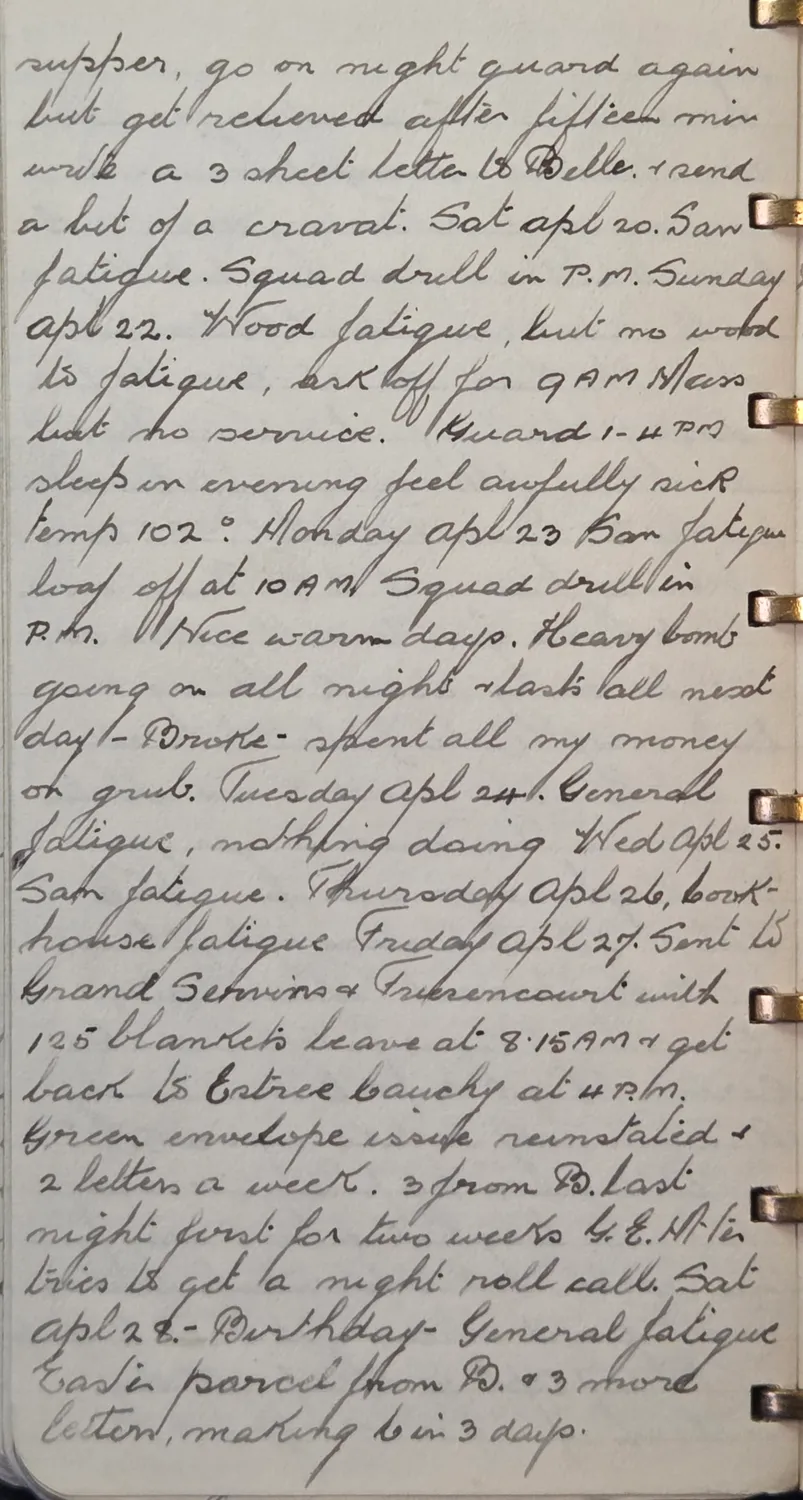 supper, go on night guard again
but get relieved after fifteen min
write a 3 sheet letter to Belle. & send
a bit of a cravat. Sat Apl 20. San
fatigue. Squad drill in P.M. Sunday
Apl 22. Wood fatigue, but no wood
to fatigue, ask off for 9 AM Mass
but no service. Guard 1-4 PM
sleep in evening feel awfully sick
temp 102°. Monday Apl 23 San fatigue
loaf off at 10 AM Squad drill in
P.M. Nice warm days. Heavy bomb
going on all night & lasts all next
day - Broke - spent all my money
on grub. Tuesday Apl 24. General
fatigue, nothing doing Wed Apl 25.
San fatigue. Thursday Apl 26, Cook-
house fatigue Friday Apl 27. Sent to
Grand Servins & Fresencourt with
125 blankets leave at 8.15 AM & get
back to Estree Cauchy at 4 P.M.
Green envelope issue reinstated &
2 letters a week. 3 from B. last
night first for two weeks G.E.
tries to get a night roll call. Sat
Apl 28. - Birthday - General fatigue
Easter parcel from B. & 3 more
letters, making 6 in 3 days.